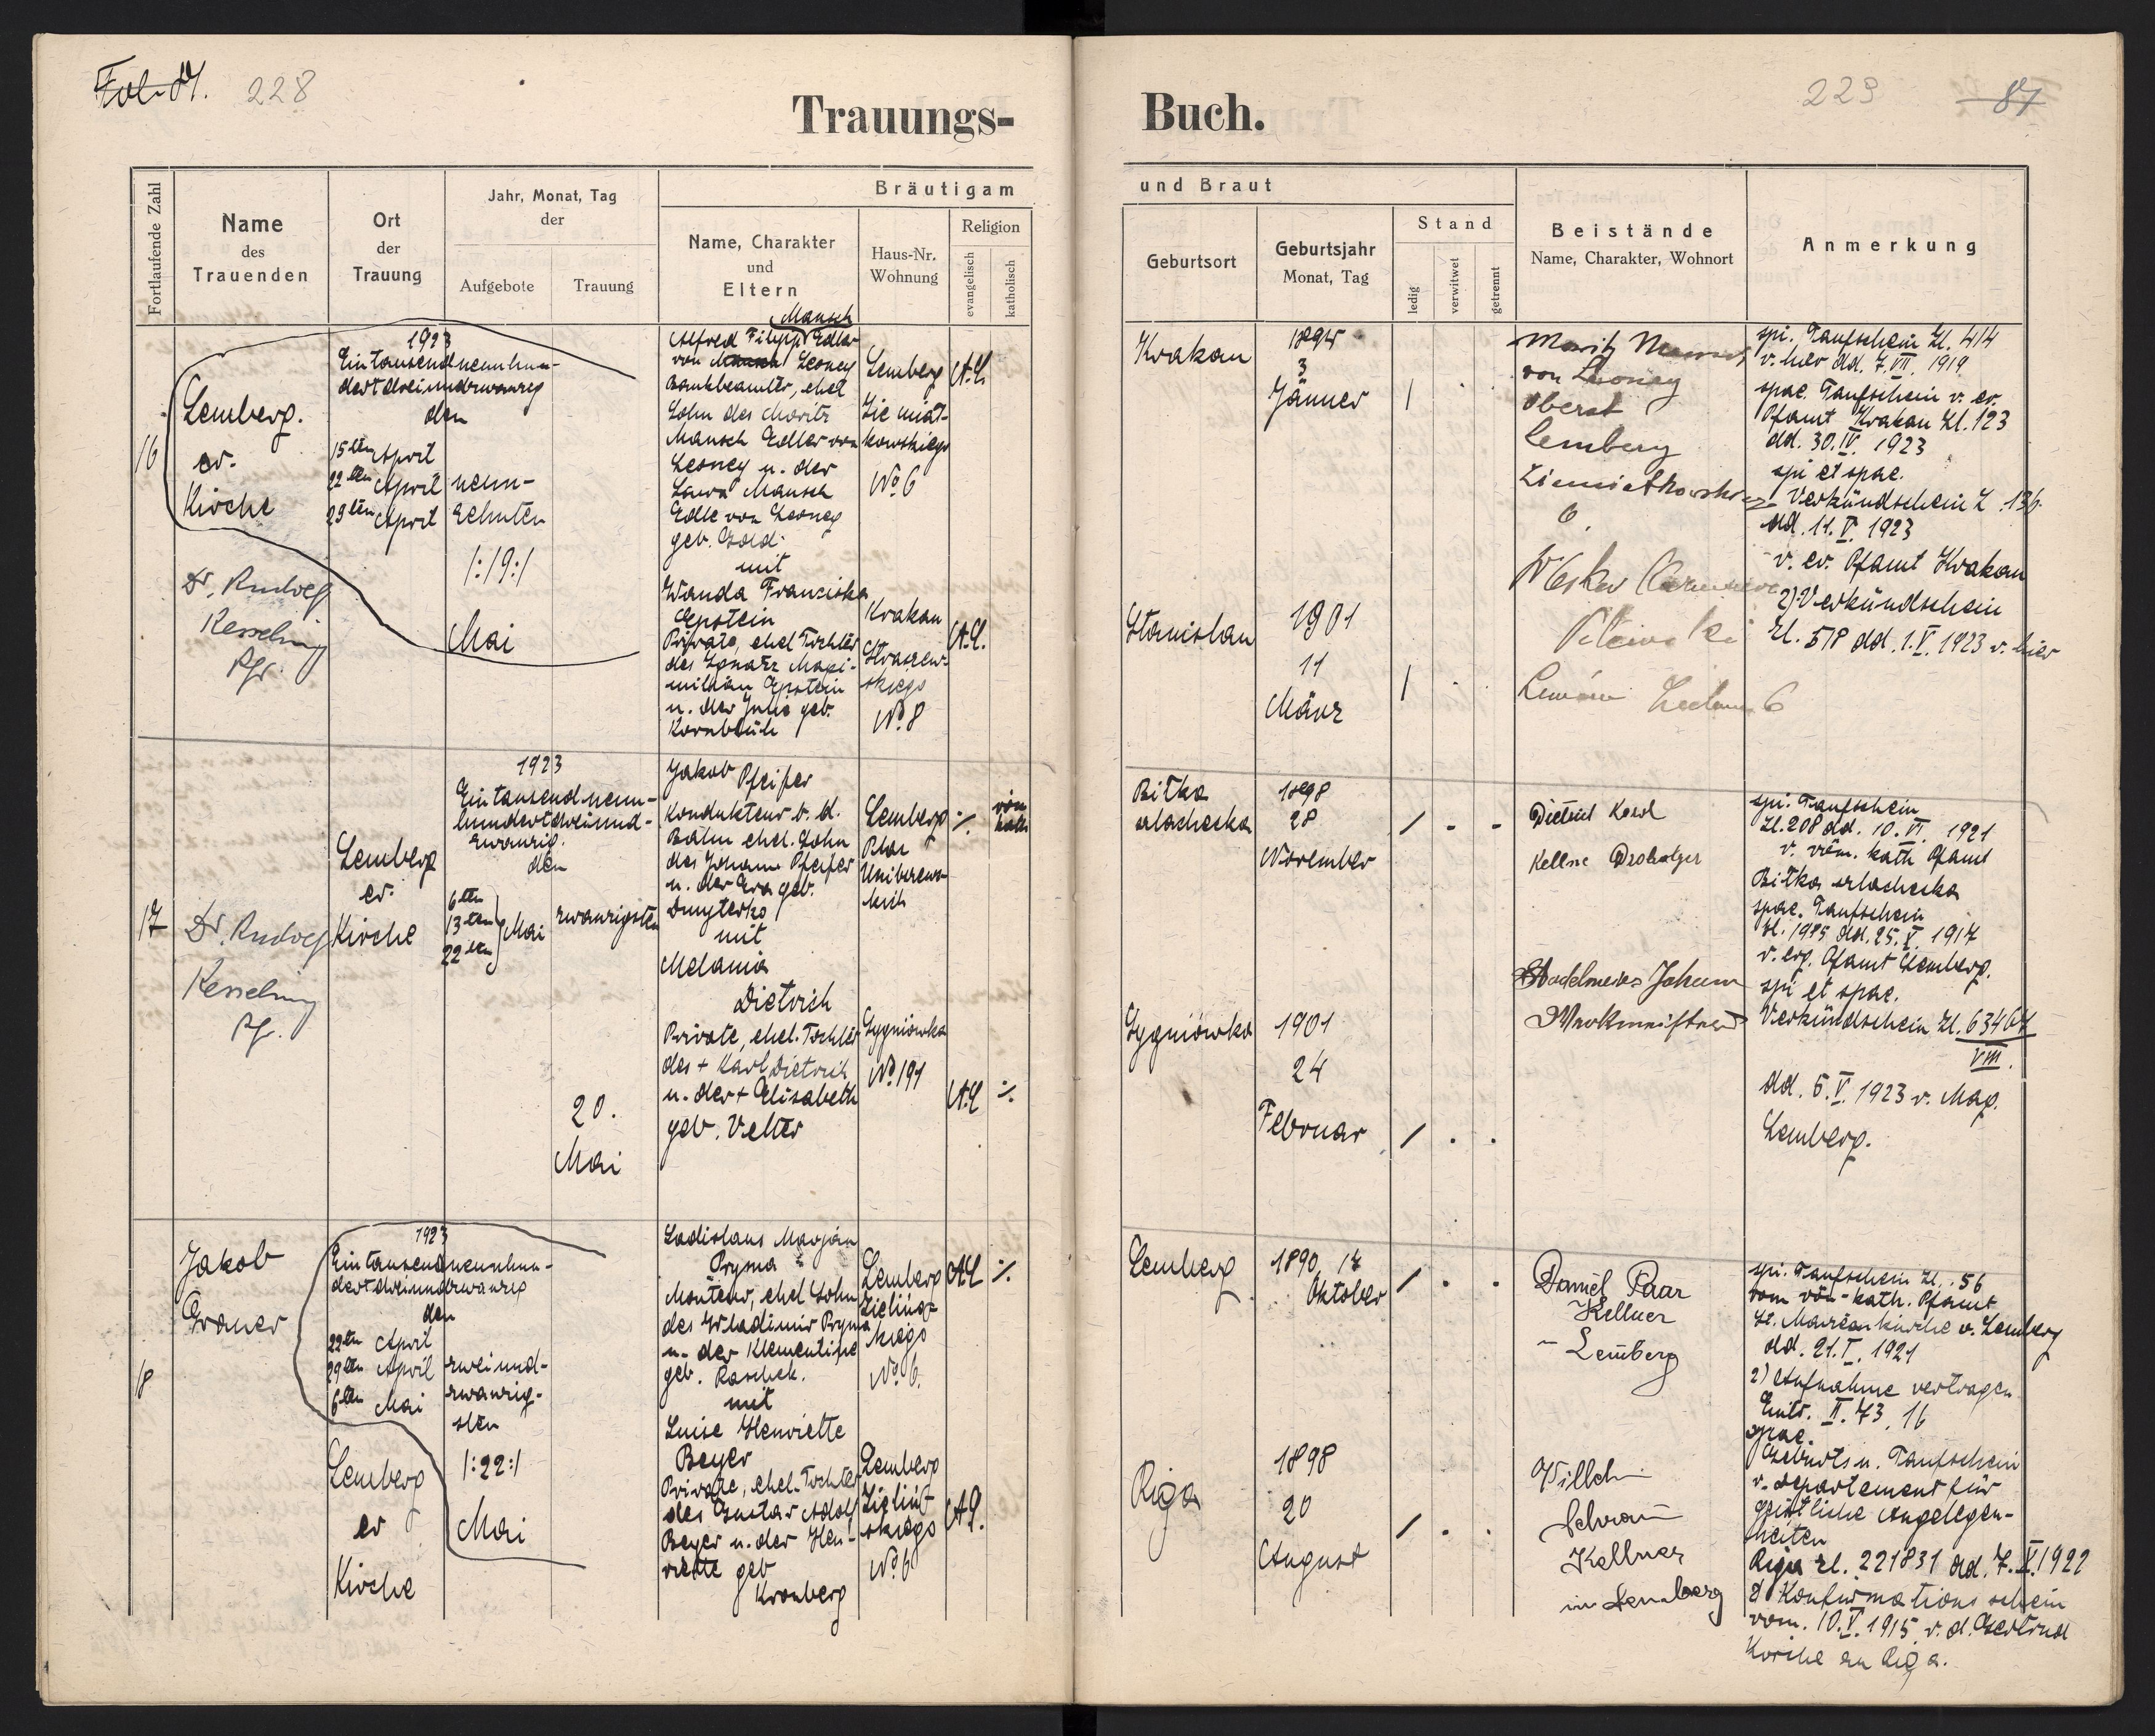 Fol. 87.
228
Trauungs-
Fortlaufende Zahl
Name
des
Trauenden
Ort
der
Trauung
Jahr, Monat, Tag
der
Aufgebote
Trauung
Bräutigam
Name, Charakter
und
Eltern
Haus-Nr.
Wohnung
Religion
evangelisch
katholisch
16
Lemberg.
ev.
Kirche
Dr. Rudolf
Kesselring
Pfr.
1923
Eintausendneunhun-
dertdreiundzwanzig
den
15ten April
22ten April
29ten April
neun-
zehnten
/:19:/
Mai
Mansch
Alfred Filipp Edler
von Mansch Lesney
Bankbeamter, ehel
Sohn des Moritz
Mansch Edler von
Lesney u. der
Laura Mansch
Edle von Lesney
geb. Gold
mit
Wanda Franziska
Epstein
Private, ehel Tochter
des Ignatz Maxi-
milian Epstein
u. der Julie geb.
Kornblüh
Lemberg
Ziemiał-
kowskiego
No 6
A.C.
Krakau
Straszew-
skiego
No 8
A.C.
17
Dr. Rudolf
Kesselring
Pf.
Lemberg
ev.
Kirche
1923
Eintausendneun-
hundertdreiund-
zwanzig.
den
6ten
13ten
22ten
Mai
zwanzigsten
20.
Mai
Jakob Pfeifer
Kondukteur b. d.
Bahn ehel. Sohn
des Johann Pfeifer
u. der Eva geb.
Dmyterko
mit
Melania
Dietrich
Private, ehel. Tochter
des + Karl Dietrich
u. der + Elisabeth
geb. Velter
Lemberg
Plac
A.C.
röm
kath
Sygniówka
No 191
18
Jakob
Graner
1923
Eintausendneunhun-
dertdreiundzwanzig
den
22ten April
29ten April
6ten Mai
zweiund-
zwanzig-
sten
/:22:/
Mai
Lemberg
ev
Kirche
Ladislaus Marjan
Pryma
Monteur, ehel Sohn
des Wladimir Pryma
u. der Klementine
geb. Raschek.
mit
Luise Henriette
Beyer
Private, ehel. Tochter
des Gustav Adolf
Beyer u. der Hen-
riette geb
Kronberg
Lemberg
Zieliń-
skiego
No 6.
A.C.
Lemberg
Zieliń-
skiego
No 6
A.C.
Buch.
229
87
und Braut
Geburtsort
Geburtsjahr
Monat, Tag
Stand
ledig
verwitwet
getrennt
Beistände
Name, Charakter, Wohnort
Anmerkung
Krakau
3
Jänner
Moritz
von Lesney
Oberst
Lemberg
Ziemiałkowskiego
6.
spi. Taufschein Zl. 414
v. hier dd. 7. VII. 1919
spae. Taufschein v. ev.
Pfamt Krakau Zl. 123
dd. 30. IV. 1923
spi et spae.
Verkündschein Z. 136.
dd. 11. V. 1923
v. ev. Pfamt Krakau
2) Verkündschein
Zl. 518 dd. 1. V. 1923 v. hier
Stanislau
1901
11
März
6
Bitka
szlachecka
1898
28
November
Dietrich Karl
Kellner
spi. Taufschein
Zl. 208 dd. 10. VI. 1921
v. röm. kath Pfamt
Bitka szlachecka
spae. Taufschein
dd. 25. V. 1917
v. ev. Pfamt Lemberg.
spi et spae.
Verkündschein Zl. 63467
VIII.
dd. 5. V. 1923 v. Mag.
Lemberg.
Sygniówka
1901
24
Februar
Johann
Werkmeister
Lemberg
1890, 17
Oktober
Daniel Paar
Kellner
- Lemberg
spi. Taufschein Zl. 56
vom röm-kath. Pfamt
St. Marienkirche v. Lemberg
dd. 21. I. 1921
2) Aufnahme vertragen
Eintr. II. 73. 16
spae.
Geburts u. Taufschein
v. Departement für
geistliche Angelegen-
heiten
Riga Zl. 221831 dd. 7. X. 1922
2) Konfirmationsschein
vom. 10. V. 1915 v. d. Gertrud
Kirche zu Riga.
Riga
1898
20
August
Kellner
in Lemberg